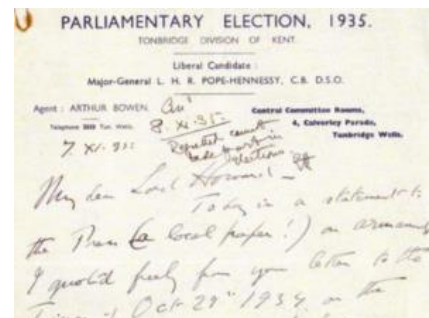 PARLIAMENTARY ELECTION, 1935.
TONBRIDGE DIVISION OF KENT.
Liberal Candidate :
Major-General L. H. R. POPE-HENNESSY, C.B. D.S.O.
Agent : ARTHUR BOWEN.
Telephone Tun. Wells.
Central Committee Rooms,
4, Calverley Parade,
Tunbridge Wells.
8. XI. 35.
Regretted cannot
take part in
elections.
7. XI. 35
My dear Lord Howard _
Today in a statement to
the Press (a local paper!) on armaments
I quoted freely from your letter to the
Times of Oct 29th 1934 on the